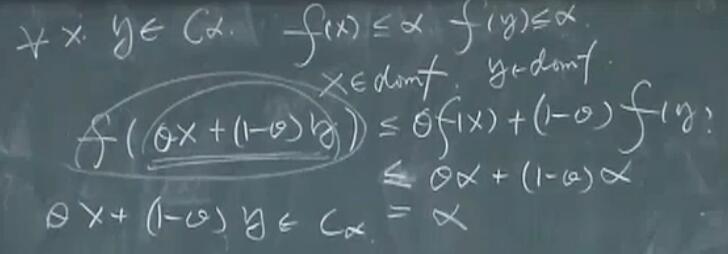 ∀ x, y ∈ Cα. f(x) ≤ α f(y) ≤ α.
x ∈ domf. y ∈ domf.
f(θx + (1-θ)y) ≤ θf(x) + (1-θ)f(y)
≤ θα + (1-θ)α
θx + (1-θ)y ∈ Cα. = α